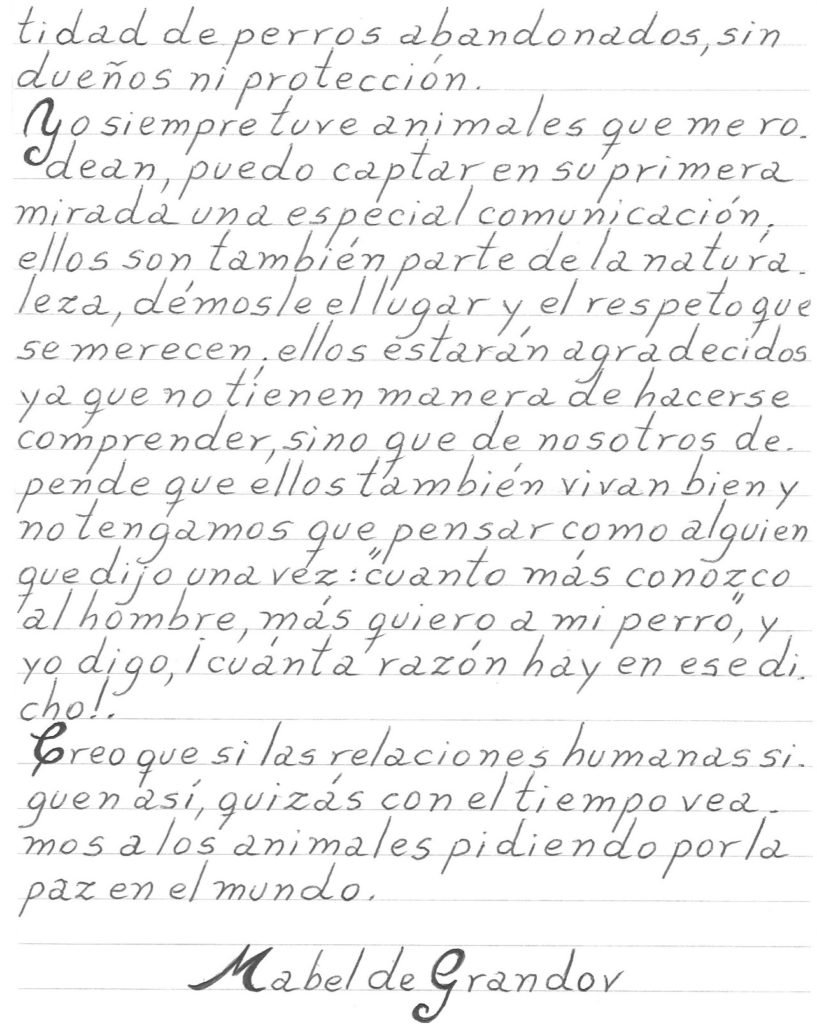 tidad de perros abandonados, sin
dueños ni protección.
Yo siempre tuve animales que me ro-
dean, puedo captar en su primera
mirada una especial comunicación;
ellos son también parte de la natura-
leza, démosle el lugar y el respeto que
se merecen; ellos estarán agradecidos
ya que no tienen manera de hacerse
comprender, sino que de nosotros de-
pende que ellos también vivan bien y
no tengamos que pensar como alguien
que dijo una vez: "cuanto más conozco
al hombre, más quiero a mi perro", y
yo digo, ¡cuánta razón hay en ese di-
cho!.
Creo que si las relaciones humanas si-
guen así, quizás con el tiempo vea-
mos a los animales pidiendo por la
paz en el mundo.
Mabel de Grandov